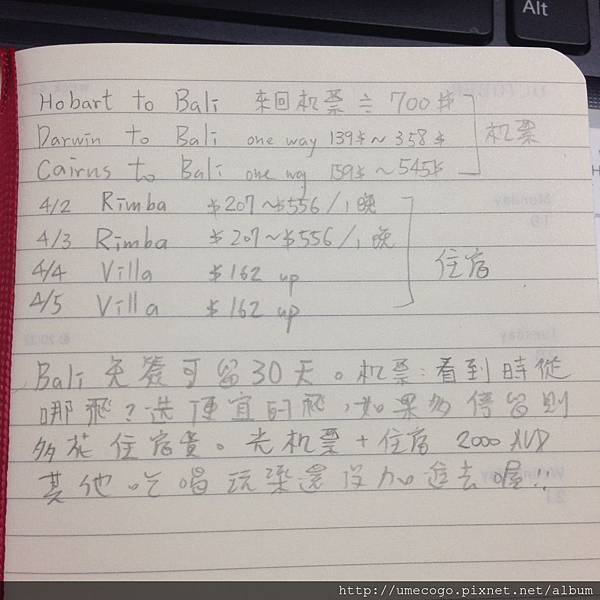 Alt
Hobart to Bali 來回机票≒ 700$
Darwin to Bali one way 139$~358$
机票
Cairns to Bali one way 159$~545$
4/2 Rimba $207~$556/1晚
4/3 Rimba $207~$556/1晚
住宿
4/4 Villa $162 up
4/5 Villa $162 up
Bali 免簽可留30天。机票:看到時從
哪飛?选便宜的飛,如果多停留則
多花住宿費。光机票+住宿 2000 AUD
其他吃喝玩樂還沒加進去喔!!
http://umecogo.pixnet.net/album